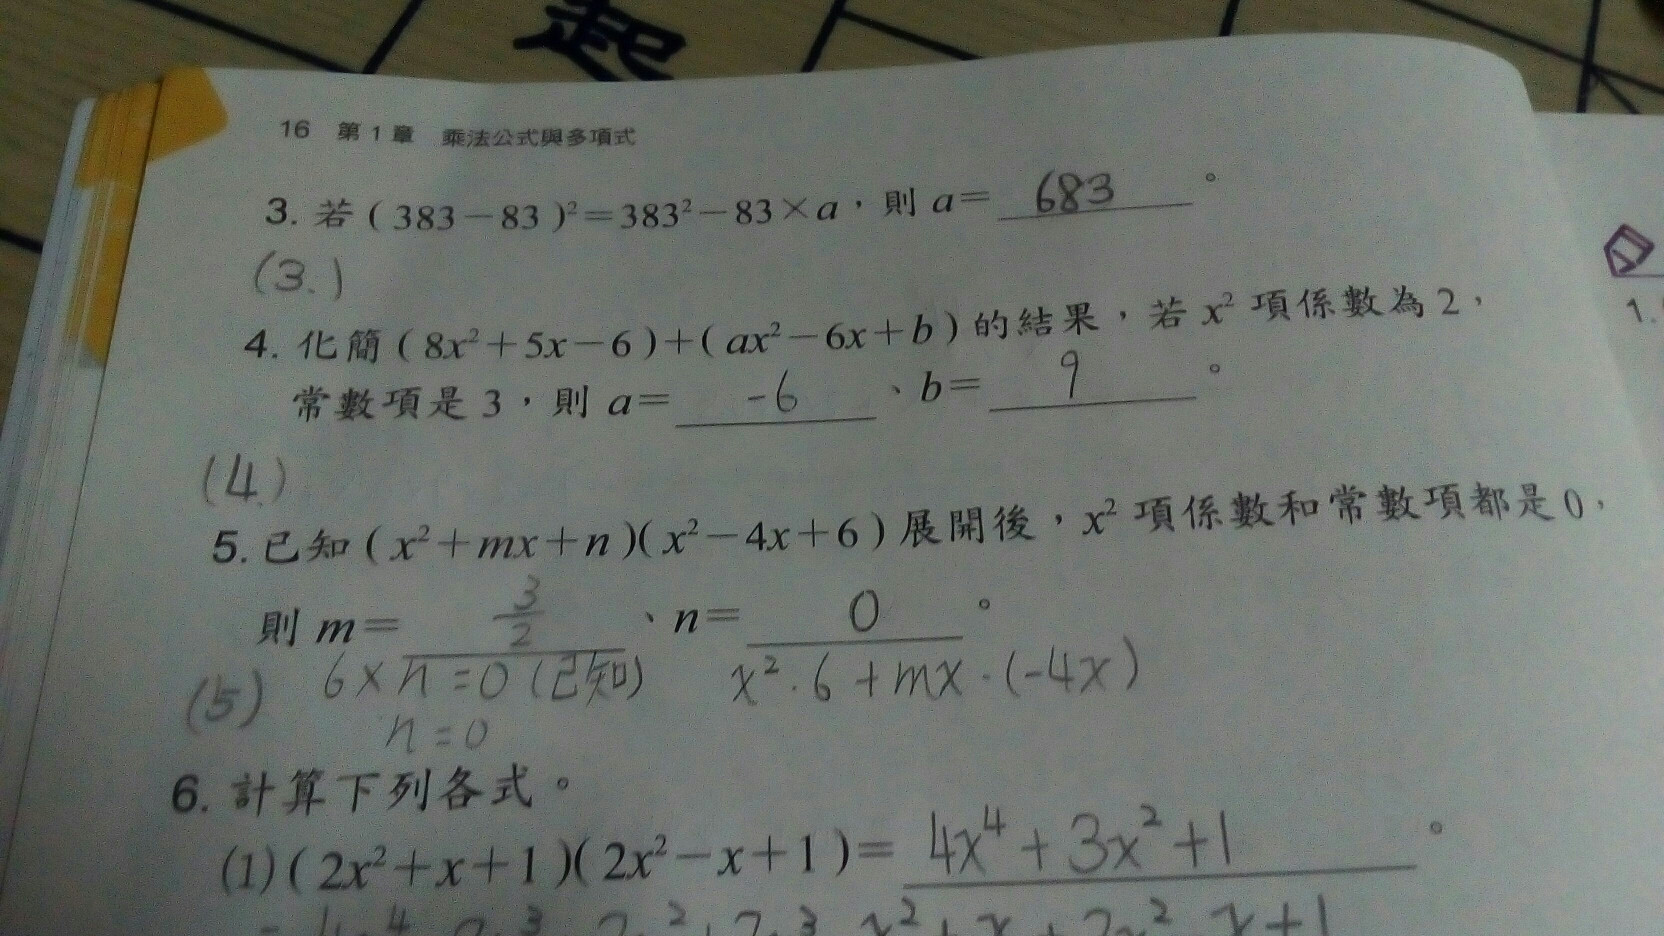 起
16 第1章 乘法公式與多項式
3. 若(383－83)²＝383²－83×a，則 a＝ 683 。
(3.)
4. 化簡(8x²＋5x－6)＋(ax²－6x＋b)的結果，若 x² 項係數為2，
常數項是3，則 a＝ -6 、b＝ 9 。
(4.)
5. 已知(x²＋mx＋n)(x²－4x＋6)展開後，x² 項係數和常數項都是0，
則 m＝ 3/2 、n＝ 0 。
(5) 6×n=0(已知) x²·6+mx·(-4x)
n=0
6. 計算下列各式。
(1)(2x²＋x＋1)(2x²－x＋1)＝ 4x⁴+3x²+1 。
1.